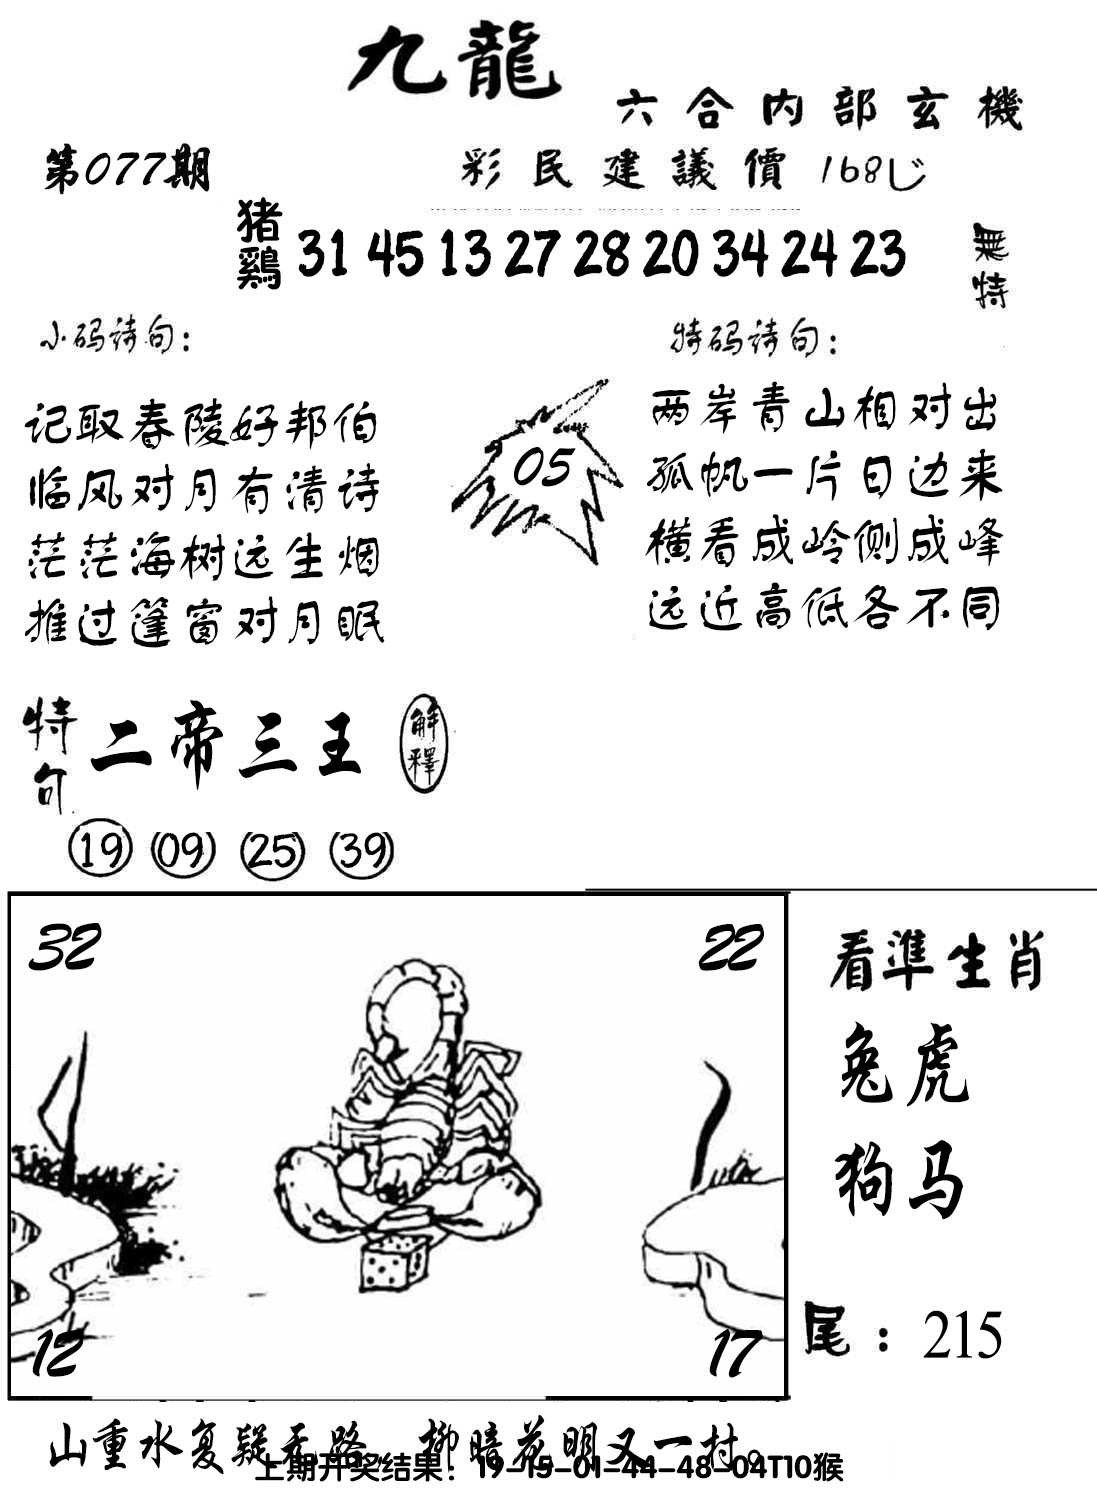 九龍
六合内部玄機
第077期
彩民建議價 168じ
猪鷄 31 45 13 27 28 20 34 24 23
無特
小码诗句：
特码诗句：
记取春陵好邦伯
临风对月有清诗
茫茫海树远生烟
推过篷窗对月眠
05
两岸青山相对出
孤帆一片日边来
横看成岭侧成峰
远近高低各不同
特句 二帝三王 解釋
19 09 25 39
32 22
12 17
看準生肖
兔虎
狗马
尾：215
山重水复疑无路，柳暗花明又一村。
上期开奖结果：19-15-01-44-48-04T10猴